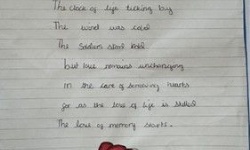 The clock of life ticking by
The wind was cold
The Soldiers stand bold
but love remains unchanging
in the care of remaining hearts
for as the love of life is stilled
The love of memory starts.